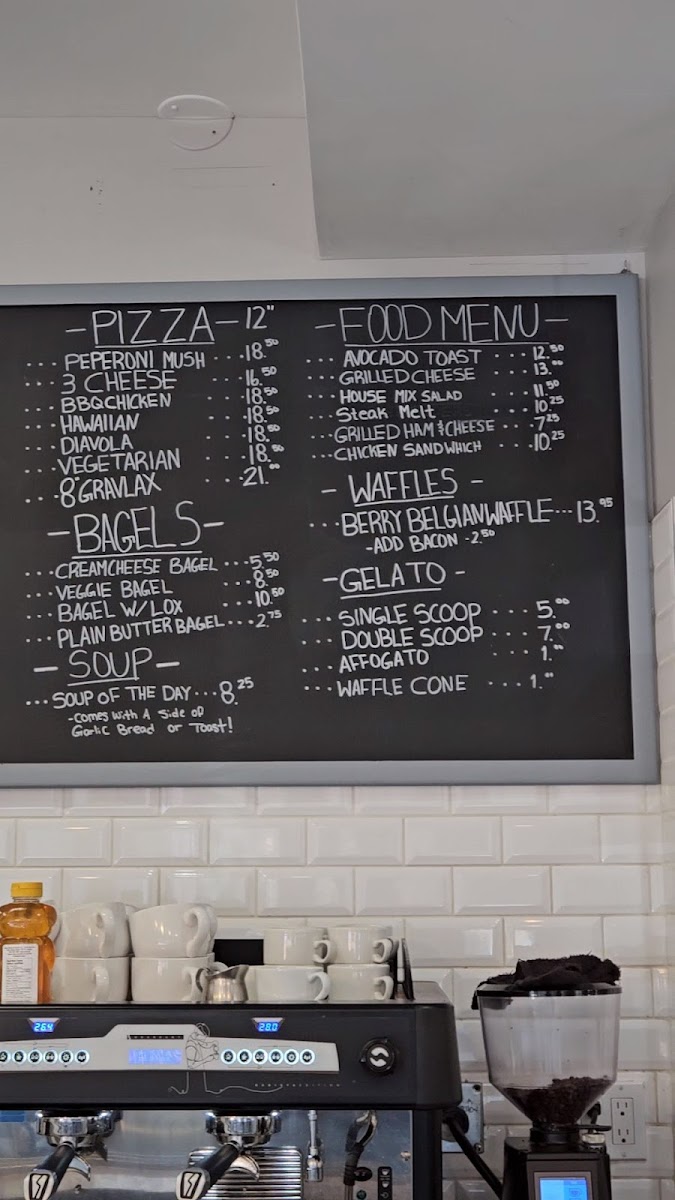 -PIZZA- 12"
... PEPERONI MUSH ... 18.50
... 3 CHEESE ... 16.50
... BBQ CHICKEN ... 18.50
... HAWAIIAN ... 18.50
... DIAVOLA ... 18.50
... VEGETARIAN ... 18.50
... 8" GRAVLAX ... 21.00
-BAGELS-
... CREAMCHEESE BAGEL ... 5.50
... VEGGIE BAGEL ... 8.50
... BAGEL W/LOX ... 10.50
... PLAIN BUTTER BAGEL ... 2.75
-SOUP-
... SOUP OF THE DAY ... 8.25
-Comes with A Side of
Garlic Bread or Toast!
-FOOD MENU-
... AVOCADO TOAST ... 12.50
... GRILLED CHEESE ... 13.00
... HOUSE MIX SALAD ... 11.50
... Steak Melt ... 10.25
... GRILLED HAM & CHEESE ... 7.25
... CHICKEN SANDWHICH ... 10.25
- WAFFLES -
... BERRY BELGIAN WAFFLE ... 13.95
-ADD BACON -2.50
-GELATO-
... SINGLE SCOOP ... 5.00
... DOUBLE SCOOP ... 7.00
... AFFOGATO ... 1.00
... WAFFLE CONE ... 1.00
26.4
28.0